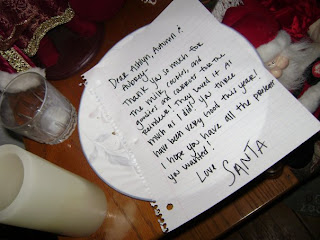 Dear Ashlyn, Autumn &
Aubrey,
Thank you so much for
the milk, cookies, and
goodies and carrots for the
Reindeer! They loved it as
much as I did! You three
have been very good this year!
I hope you have all the presents
you wanted!
Love SANTA